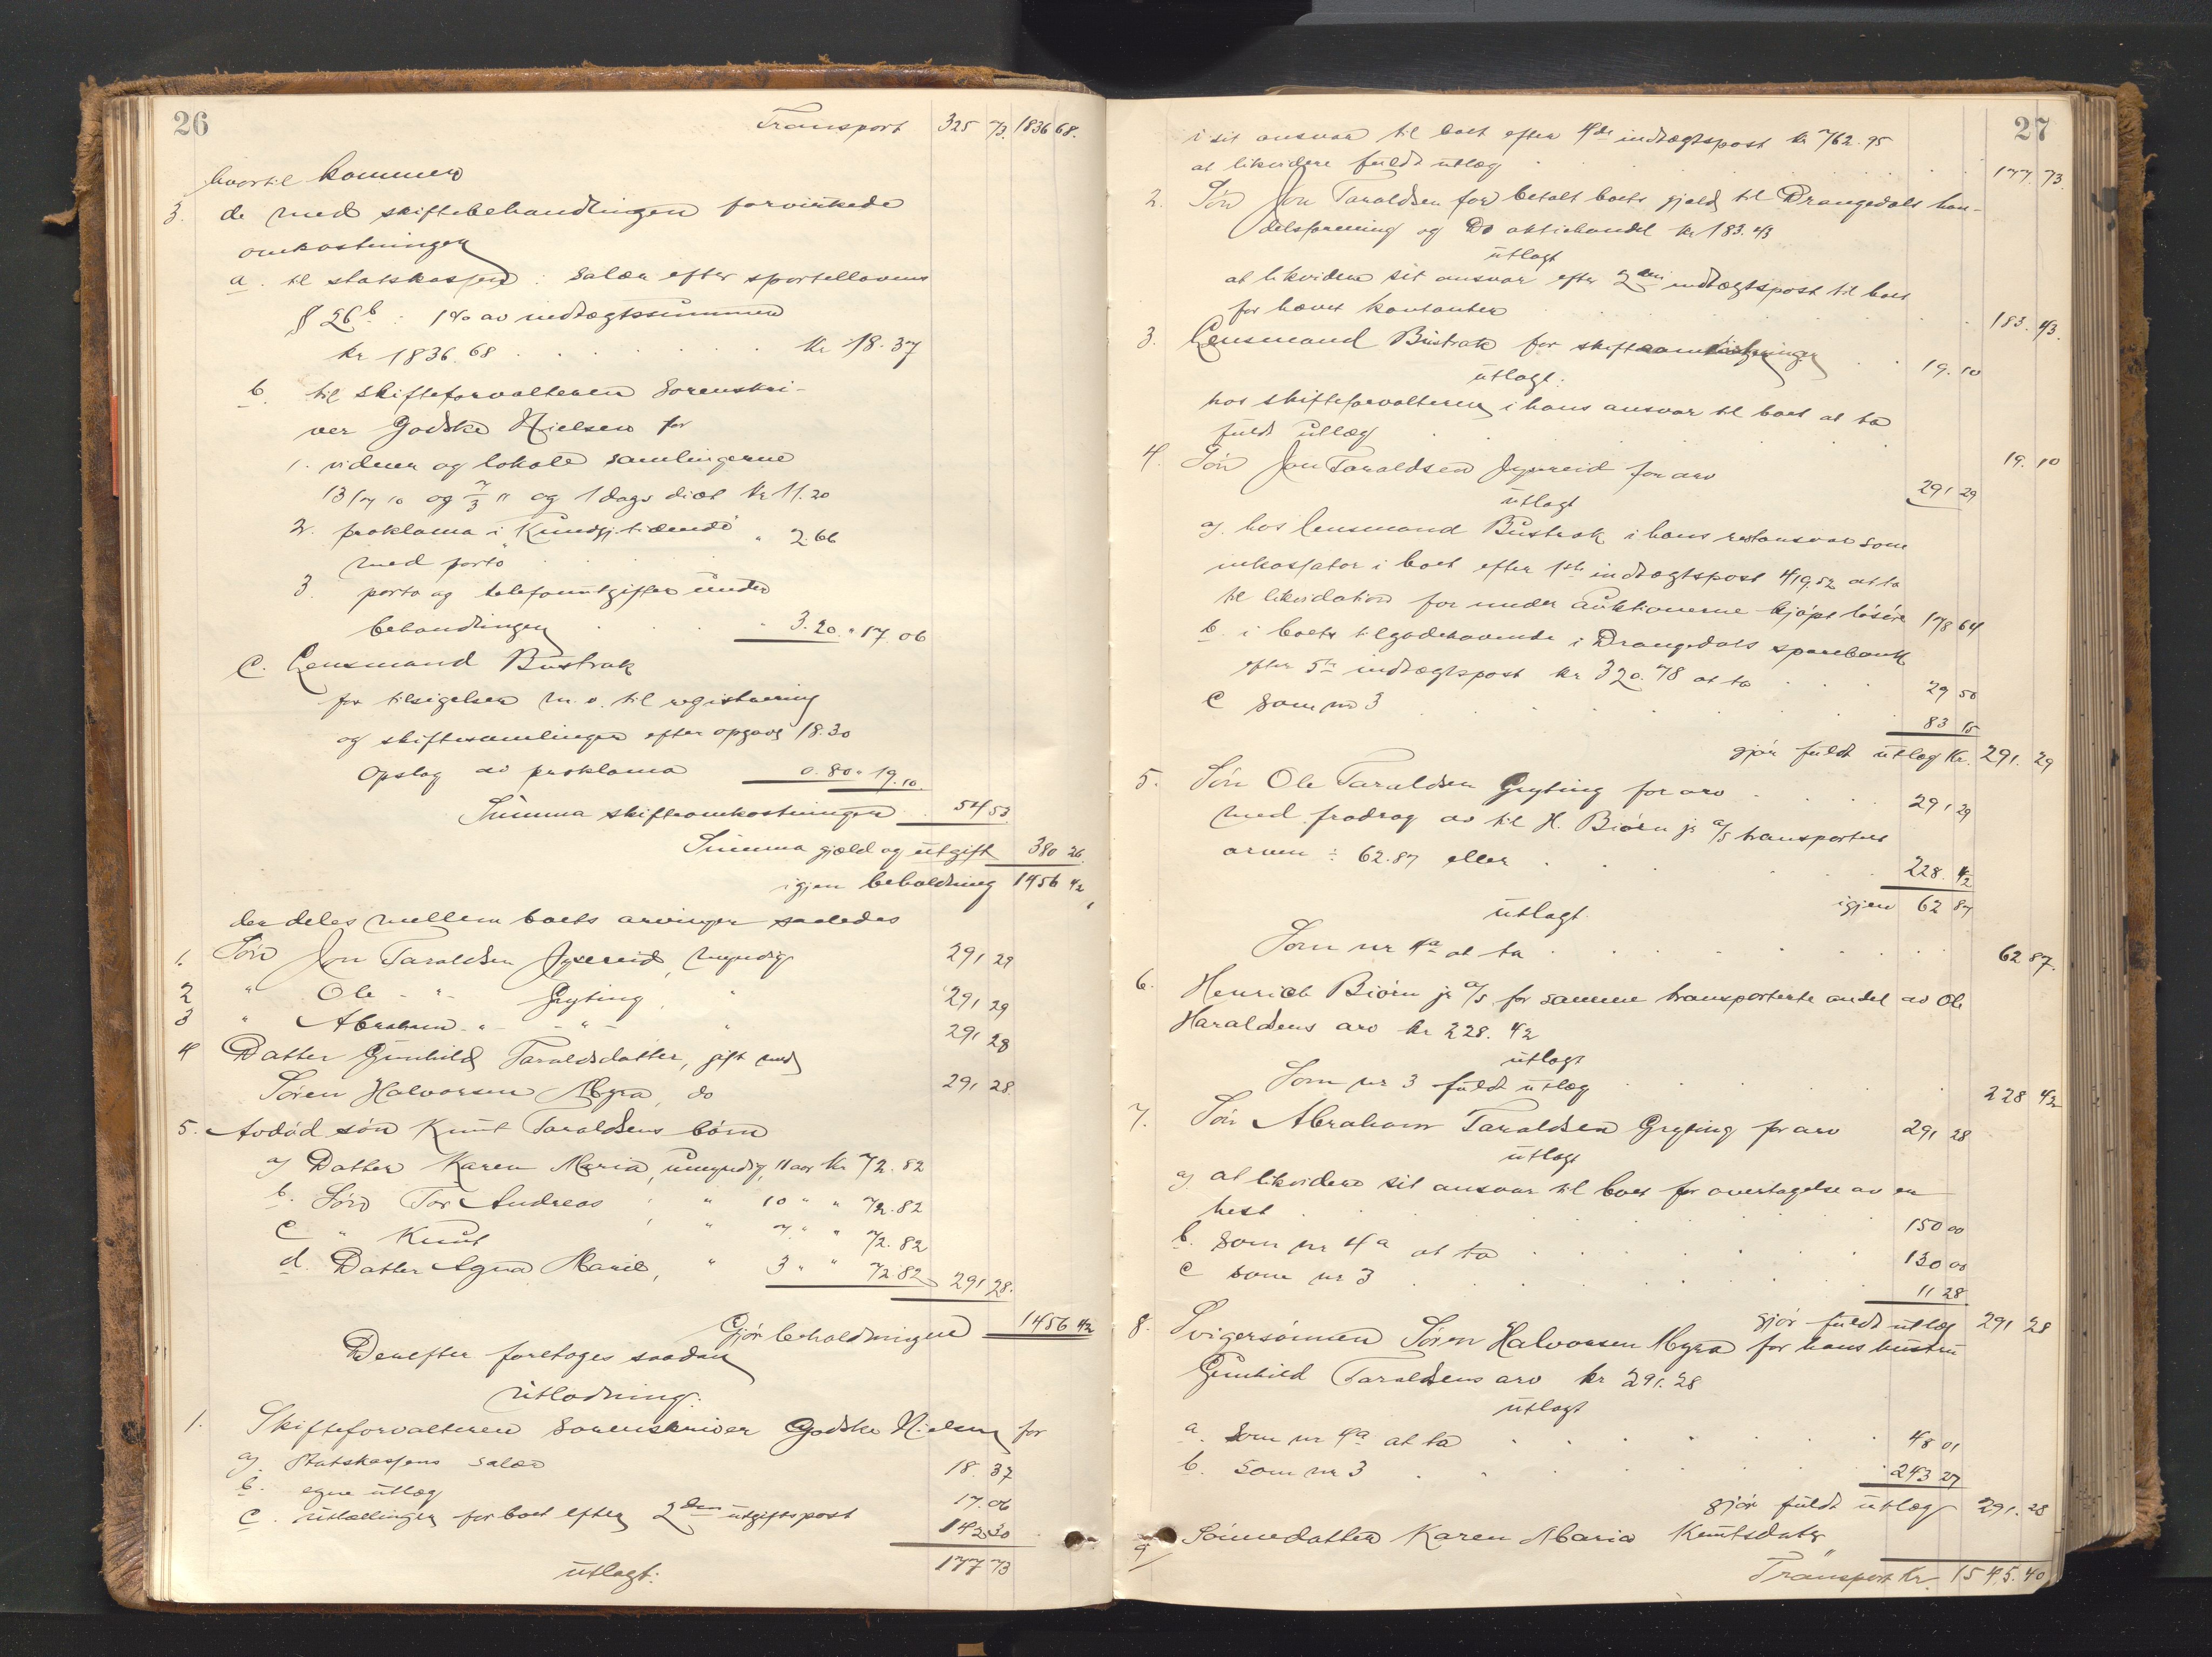 26
Transport 325 73. 1836 68.
hvortil kommer
3. de med skiftebehandlingen forvirkede
omkostninger
a. til statskassen: salær efter sportellovens
§ 26 b: 1 % av indtægtssummen
kr 1836.68 . . . . . . . kr 18.37
b. til skifteforvalteren sorenskri-
ver Godske Nielsen for
1. vidner og lokale samlingerne
13/7 10 og 7/3 11 og 1 dags diæt kr 11.20
2. proklama i Kundgj. tidende
med porto . . . " 2.66
3. porto og telefonutgifter under
behandlingen . . . " 3.20 " 17.06
c. Lensmand Bustrak
for tilsigelser m.v. til registrering
og skiftesamlinger efter opgave 18.30
Opslag av proklama 0.80 " 19.10.
Summa skifteomkostninger 54 53.
Summa gjæld og utgift 380 26.
igjen beholdning 1456 42
der deles mellem boets arvinger saaledes
1. Søn Jon Taraldsen Jysereid, myndig 291 29
2 " Ole - " - Gryting, " 291 29
3 " Abraham - " - - " - " 291 28
4 Datter Gunhild Taraldsdatter, gift med
Søren Halvorsen Myra, do 291 28.
5. Avdød søn Knut Taraldsens børn
a) Datter Karen Maria, umyndig, 11 aar kr 72.82
b. Søn Tor Andreas , " 10 " " 72.82
c " Knut , " 7 " " 72.82
d. Datter Agna Marie, " 3 " " 72.82 291 28.
Gjør beholdningen 1456 42
Derefter foretoges saadan
utlodning:
1. Skifteforvalteren sorenskriver Godske Nielsen for
a) Statskassens salær 18.37
b. egne utlæg 17.06
c. uttællinger for boet efter 2den utgiftspost 142 30
177 73
utlagt:
27
i sit ansvar til boet efter 4de indtægtspost kr 762.95
at likvidere fuldt utlæg . . . . . 177.73.
2. Søn Jon Taraldsen for betalt boets gjæld til Drangedals han-
delsforening og Do aktiehandel kr 183.43
utlagt
at likvidere sit ansvar efter 2den indtægtspost til boet
for hævet kontanter . . . . . 183.43.
3. Lensmand Bustrak for skifteomkostninger . . 19.10
utlagt:
hos skifteforvalteren i hans ansvar til boet at ta
fuldt utlæg . . . . . 19.10
4. Søn Jon Taraldsen Jysereid for arv 291 29
utlagt
a) hos lensmand Bustrak i hans restansvar som
inkassator i boet efter 1ste indtægtspost 419.52 at ta
til likvidation for under auktionerne kjøpt løsøre 178 64
b. i boets tilgodehavende i Drangedals sparebank
efter 5te indtægtspost kr 320.78 at ta . . . 29 50
c som nr 3 . . . . . 83 15
gjør fuldt utlæg kr. 291.29
5. Søn Ole Taraldsen Gryting for arv . . . . 291 29
med fradrag av til H. Biørn jr a/s transportert
arven ÷ 62.87 eller . . . . . 228.42
igjen 62 87
utlagt.
Som nr 4a at ta . . . . . 62 87.
6. Henrich Biørn jr a/s for samme transporterte andel av Ole
Haraldsens arv kr 228.42
utlagt
Som nr 3 fuldt utlæg . . . . . 228 42
7. Søn Abraham Taraldsen Gryting for arv 291 28
utlagt
a) at likvidere sit ansvar til boet for overtagelse av en
hest . . . . . 150 00
b. som nr 4a at ta . . . . . 130 00
c som nr 3 . . . . . 11 28
gjør fuldt utlæg 291 28
8. Svigersønnen Søren Halvorsen Myra for hans hustru
Gunhild Taraldsens arv kr 291.28
utlagt
a. Som nr 4a at ta . . . . . 48 01
b. som nr 3 . . . . . 243 27
gjør fuldt utlæg 291.28
9/ Sønnedatter Karen Maria Knutsdatter
Transport kr. 1545.40